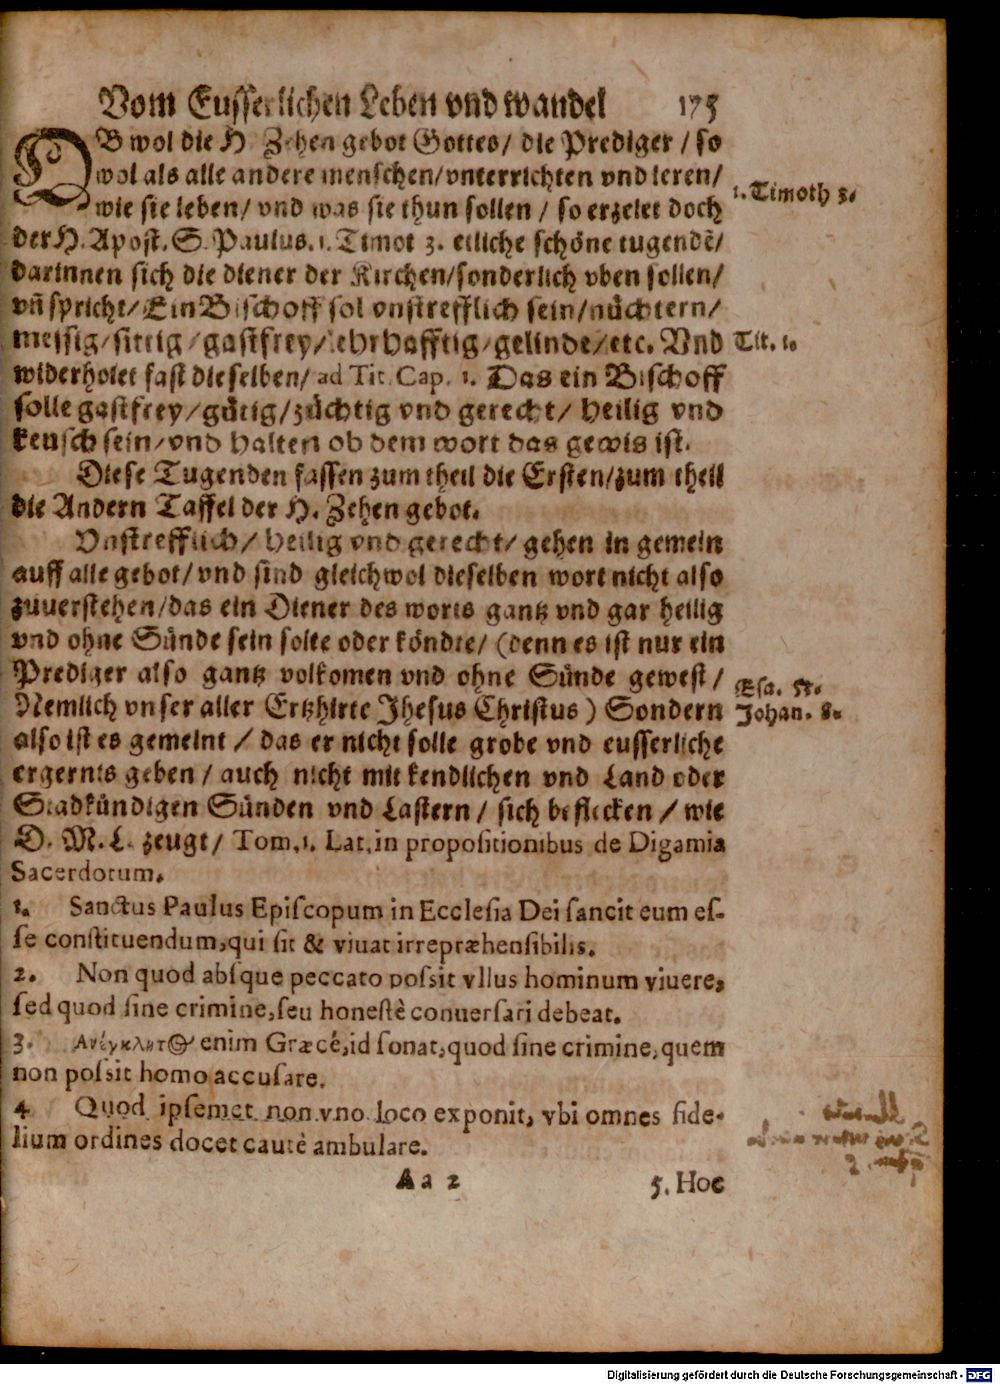 Vom Eusserlichen Leben vnd wandel 175
OB wol die H. Zehen gebot Gottes/ die Prediger / so
wol als alle andere menschen/vnterrichten vnd leren/
wie sie leben/ vnd was sie thun sollen / so erzelet doch
1. Timoth 3.
der H. Apost. S. Paulus. 1. Timot 3. etliche schöne tugendē/
darinnen sich die diener der Kirchen/sonderlich vben sollen/
vñ spricht/Ein Bischoff sol vnstrefflich sein/nüchtern/
messig/sittig/gastfrey/lehrhafftig/gelinde/etc. Vnd
Tit. 1.
widerholet fast dieselben/ ad Tit. Cap. 1. Das ein Bischoff
solle gastfrey/gütig/züchtig vnd gerecht/ heilig vnd
keusch sein/vnd halten ob dem wort das gewis ist.
Diese Tugenden fassen zum theil die Ersten/zum theil
die Andern Taffel der H. Zehen gebot.
Vnstrefflich/ heilig vnd gerecht/ gehen in gemein
auff alle gebot/vnd sind gleichwol dieselben wort nicht also
zuuerstehen/das ein Diener des worts gantz vnd gar heilig
vnd ohne Sünde sein solte oder köndte/ (denn es ist nur ein
Prediger also gantz volkomen vnd ohne Sünde gewest/
Esa. 53.
Nemlich vnser aller Ertzhirte Jhesus Christus) Sondern
Johan. 8.
also ist es gemeint / das er nicht solle grobe vnd eusserliche
ergernis geben / auch nicht mit kendlichen vnd Land oder
Stadkündigen Sünden vnd Lastern / sich beflecken / wie
D. M. L. zeugt/ Tom. 1. Lat. in propositionibus de Digamia
Sacerdotum.
1. Sanctus Paulus Episcopum in Ecclesia Dei sancit eum es-
se constituendum, qui sit & viuat irrepræhensibilis.
2. Non quod absque peccato possit vllus hominum viuere,
sed quod sine crimine, seu honestè conuersari debeat.
3. Ανέγκλητ⊕ enim Græcè, id sonat, quod sine crimine, quem
non possit homo accusare.
4 Quod ipsemet non vno loco exponit, vbi omnes fide-
lium ordines docet cautè ambulare.
Aa 2 5. Hoc
Digitalisierung gefördert durch die Deutsche Forschungsgemeinschaft - DFG